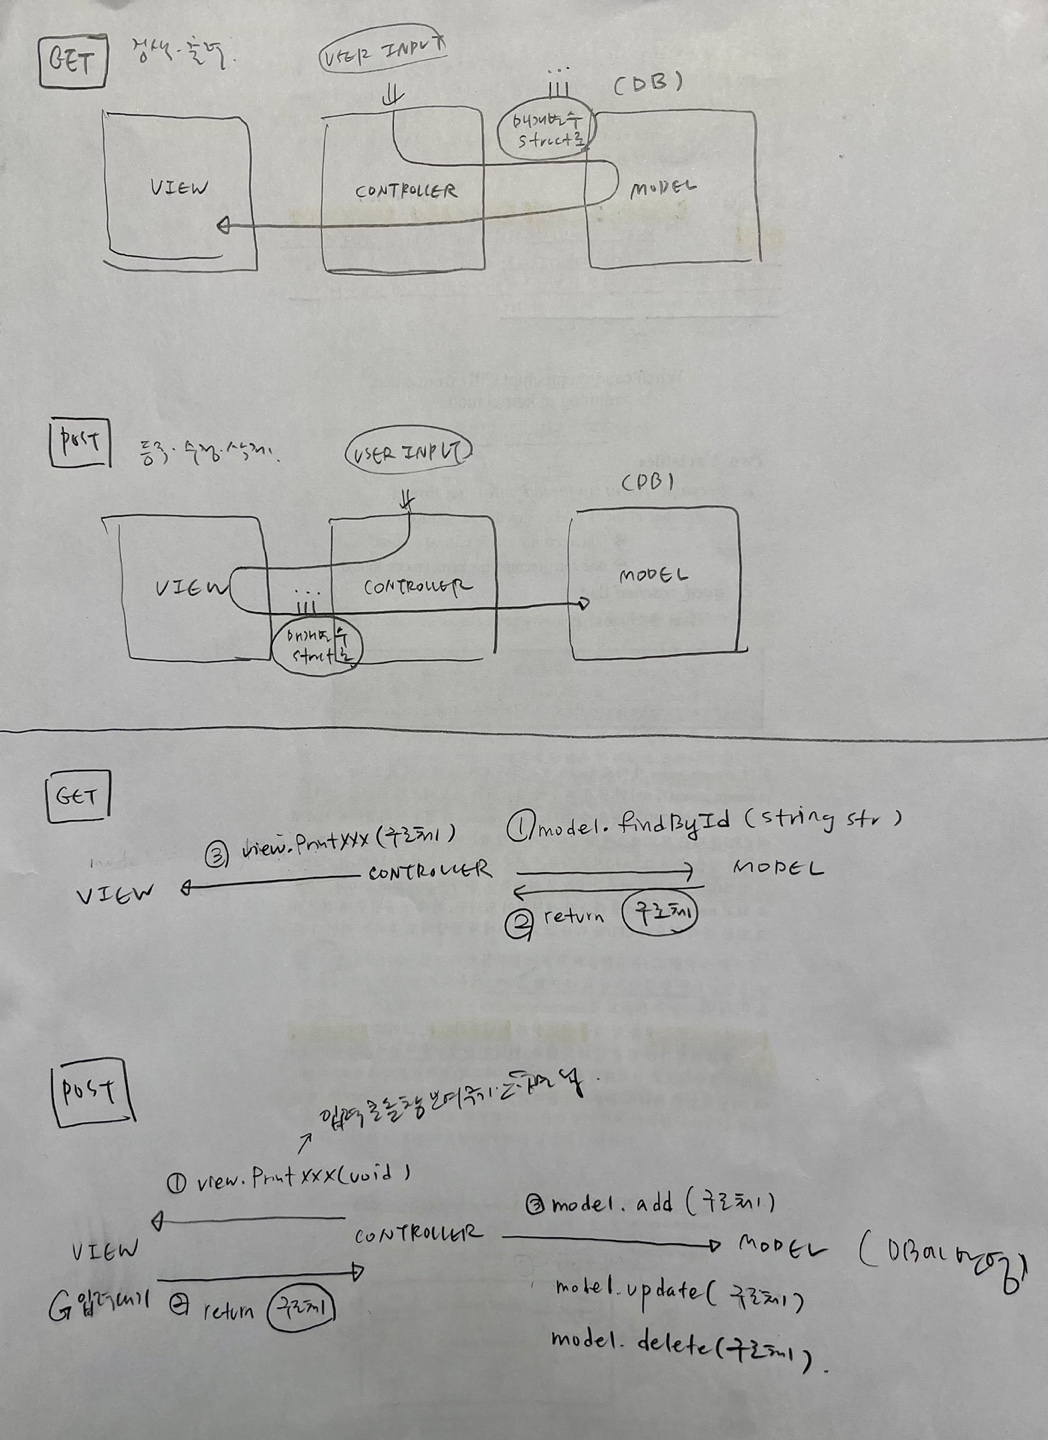 GET 검색·출력.
USER INPUT
(DB)
매개변수
struct로
VIEW
CONTROLLER
MODEL
POST 등록·수정·삭제.
USER INPUT
(DB)
VIEW
CONTROLLER
MODEL
매개변수
struct로
GET
① model.findById (string str)
③ view.PrintXXX (구조체)
VIEW
CONTROLLER
MODEL
② return 구조체
POST
입력
① view.PrintXXX(void)
③ model.add (구조체)
VIEW
CONTROLLER
MODEL (DB에 반영)
입력받기 ② return 구조체
model.update( 구조체)
model.delete(구조체).